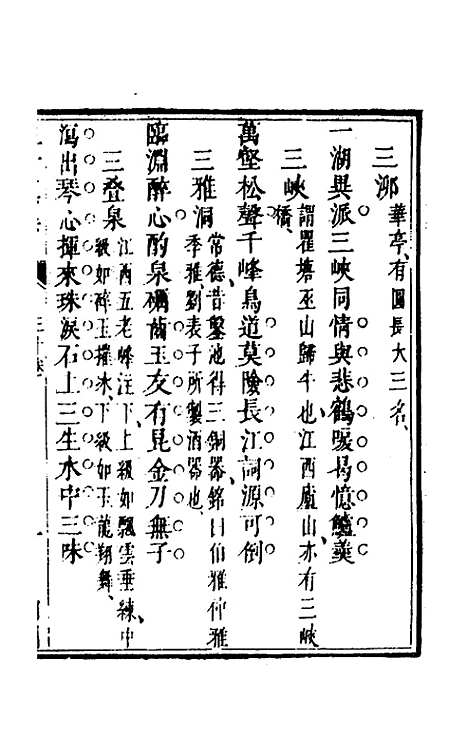 三泖華亭、有圓長大三名、
一湖異派三峽同情與悲鶴唳曷憶鱸羹
三峽謂瞿塘巫山歸牛也、江西廬山亦有三峽
橋、
萬壑松聲千峰鳥道莫險長江詞源可倒
三雅洞常德、昔鑿池得三銅器、銘曰伯雅仲雅
季雅、劉表子所製酒器也、
臨淵醉心酌泉礪齒玉友有見金刀無子
三疊泉江西五老峰注下、上級如飄雲垂練、中
級如碎玉摧冰、下級如玉龍翔舞、
瀉出琴心揮來珠淚石上三生水中三昧